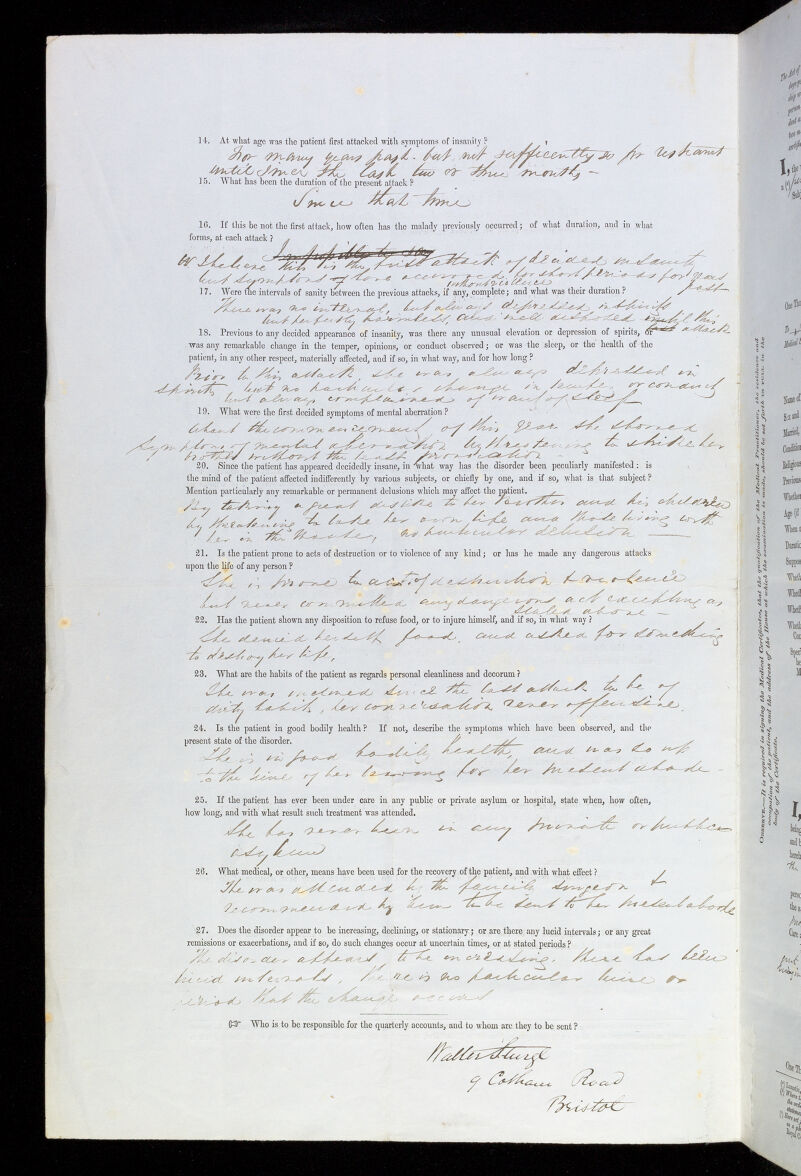 14. At what age was the patient first attacked with symptoms of insanity?
For many years past. but not sufficently so for restraint
until since the last two or three months –
15. What has been the duration of the present attack?
Since that time
16. If this be not the first attack, how often has the malady previously occurred; of what duration, and in what
forms, at each attack?
Impossible to say
I believe this is the first attack of decided insanity
but symptoms of have occurred for short periods for years
past
17. Were the intervals of sanity between the previous attacks, if any, complete; and what was their duration?
without violence
There was no interval, but always depressed in spirits
but perfectly harmless and well disposed until this
last attack
18. Previous to any decided appearance of insanity, was there any unusual elevation or depression of spirits, or
was any remarkable change in the temper, opinions, or conduct observed; or was the sleep, or the health of the
patient, in any other respect, materially affected, and if so, in what way, and for how long?
Prior to this attack she was always depressed in
spirits but no particular change in temper or conduct
but always complained of want of sleep
19. What were the first decided symptoms of mental aberration?
About the commencement of this year she showed
symptoms of mental aberration by threatening to strike her
brother without the least provocation
20. Since the patient has appeared decidedly insane, in what way has the disorder been peculiarly manifested: is
the mind of the patient affected indifferently by various subjects, or chiefly by one, and if so, what is that subject?
Mention particularly any remarkable or permanent delusions which may affect the patient.
By taking a great dislike to her brother and his children
by threatening to take her own life and those living with
her in the house, no particular delusion
21. Is the patient prone to acts of destruction or to violence of any kind; or has he made any dangerous attacks
upon the life of any person?
She is prone to acts of destruction & violence
but never committed any dangerous act excepting as
stated above –
22. Has the patient shown any disposition to refuse food, or to injure himself, and if so, in what way?
She denied herself food, and asked for something
to destroy her life,
23. What are the habits of the patient as regards personal cleanliness and decorum?
She was inclined since the last attack to be of
dirty habits, her conversation never offensive.
24. Is the patient in good bodily health? If not, describe the symptoms which have been observed, and the
present state of the disorder.
She is in good bodily health, and was so up
to the time of her leaving for her present abode –
25. If the patient has ever been under care in any public or private asylum or hospital, state when, how often,
how long, and with what result such treatment was attended.
She has never been in any private or public
asylum
26. What medical, or other, means have been used for the recovery of the patient, and with what effect?
She was attended by the family surgeon &
recommended by him to be sent to her present abode
27. Does the disorder appear to be increasing, declining, or stationary; or are there any lucid intervals; or any great
remissions or exacerbations, and if so, do such changes occur at uncertain times, or at stated periods?
The disorder appears to be increasing. there has been
lucid intervals, there is no particular time or
period that the change occurs
☞ Who is to be responsible for the quarterly accounts, and to whom are they to be sent?
Walter Sturge
9 Cotham Road
Bristol